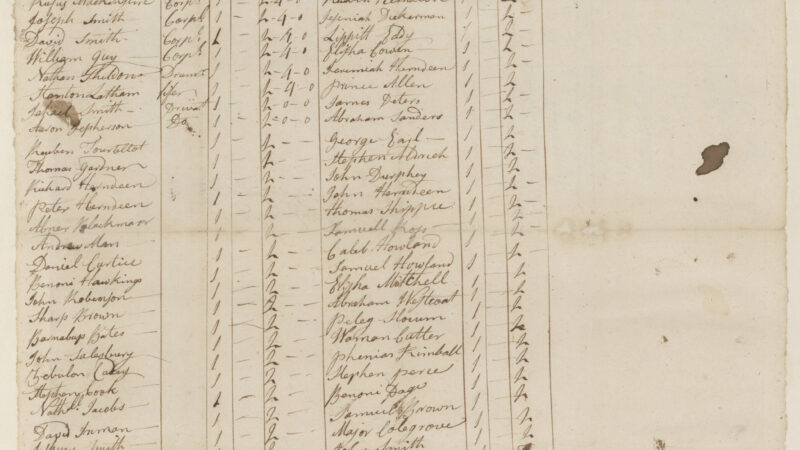 Corpl 1 2-4-0
Joseph Smith Corpl 1 2-4-0 Jeremiah Dickerman 1 2
David Smith Corpl 1 2-4-0 Lippitt Eddy 1 2
William Guy Corpl 1 2-4-0 Elisha Cowen 1 2
Nathan Sheldon Drumr 1 2-4-0 Jeremiah Herndeen 1 2
Stanton Latham fifer 1 2-4-0 Prince Allen 1 2
Smith Privat 1 2-0-0 James Peters 1 2
Aaron Jepherson Do 1 2-0-0 Abraham Sanders 1 2
Reuben Tourtelot 1 2 George Earl 1 2
Thomas Gardner 1 2 Stephen Aldrich 1 2
Richard Herndeen 1 2 John Durphey 1 2
Peter Herndeen 1 2 John Herndeen 1 2
Abner Blackmarr 1 2 Thomas Shippie 1 2
Andrew Man 1 2 Samuell 1 2
Daniel Curtice 1 2 Caleb Howland 1 2
Benoni Hawkings 1 2 Samuel Howland 1 2
John Robinson 1 2 Elisha Mitchell 1 2
Sharp Brown 1 2 Abraham Westcoat 1 2
Barnabus Bates 1 2 Peleg Slocum 1 2
John Salesbury 1 2 Cutter 1 2
Zebulon 1 2 Phenias Kimball 1 2
Stephen Cook 1 2 Stephen Perce 1 2
Nathl Jacobs 1 2 Benoni 1 2
David Inman 1 2 Samuel Brown 1 2
Smith 1 2 Major Colegrove 1 2
John Smith